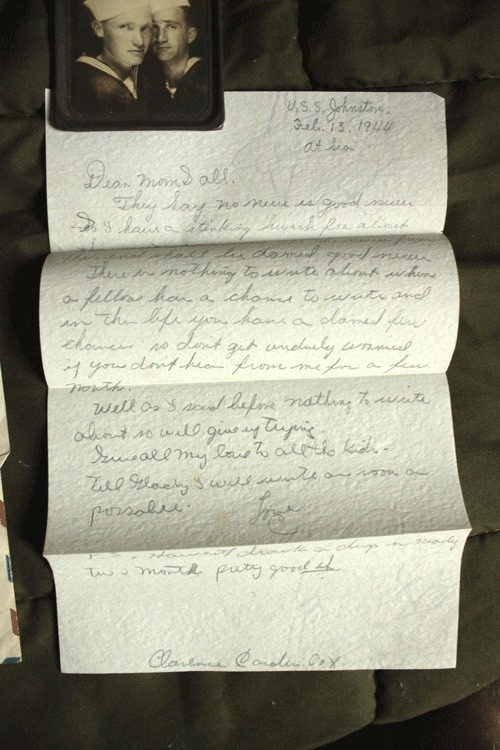 U.S.S. Johnston.
Feb. 13, 1944
At sea
Dear Mom & all.
They say no news is good news
So I have a stinking hunch for about
shall be damed good news
There is nothing to write about when
a fellow has a chance to write and
in this life you have a damed few
chances so don't get unduely worried
if you don't hear from me for a few
month.
Well as I said before nothing to write
about so will give up trying.
Give all my love to all the kids.
Tell Glady I will write as soon as
possable.
Love
P.S. Haven't drank a drop in nearly
two month pretty good eh
Clarence